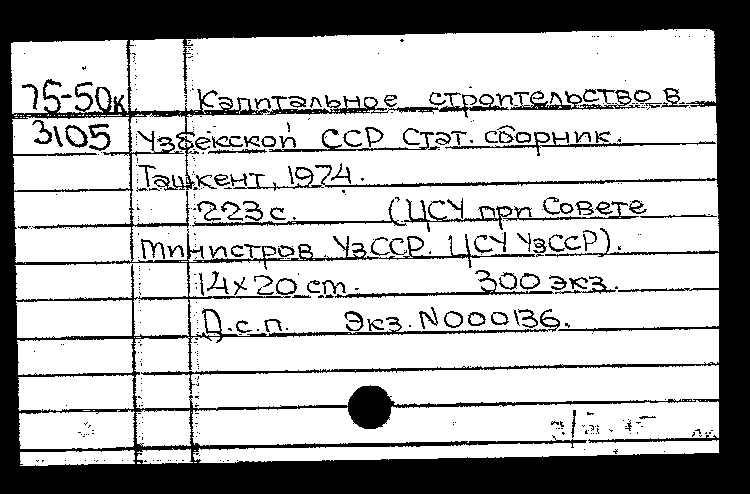 75-50к Капитальное строительство в
3105 Узбекской ССР Стат. сборник.
Ташкент, 1974.
223 с. (ЦСУ при Совете
министров УзССР. ЦСУ УзССР).
14x20 cm. 300 экз.
Д.с.п. Экз. N000136.